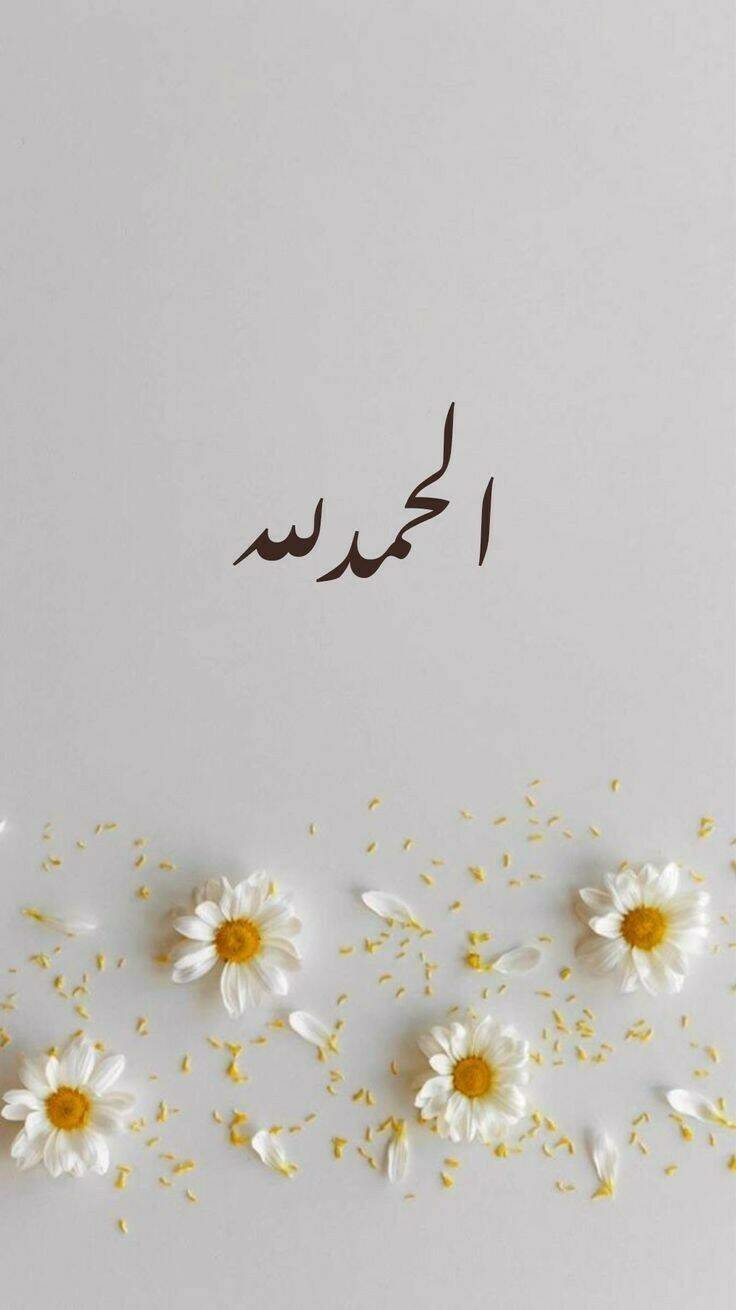 الحمدلله